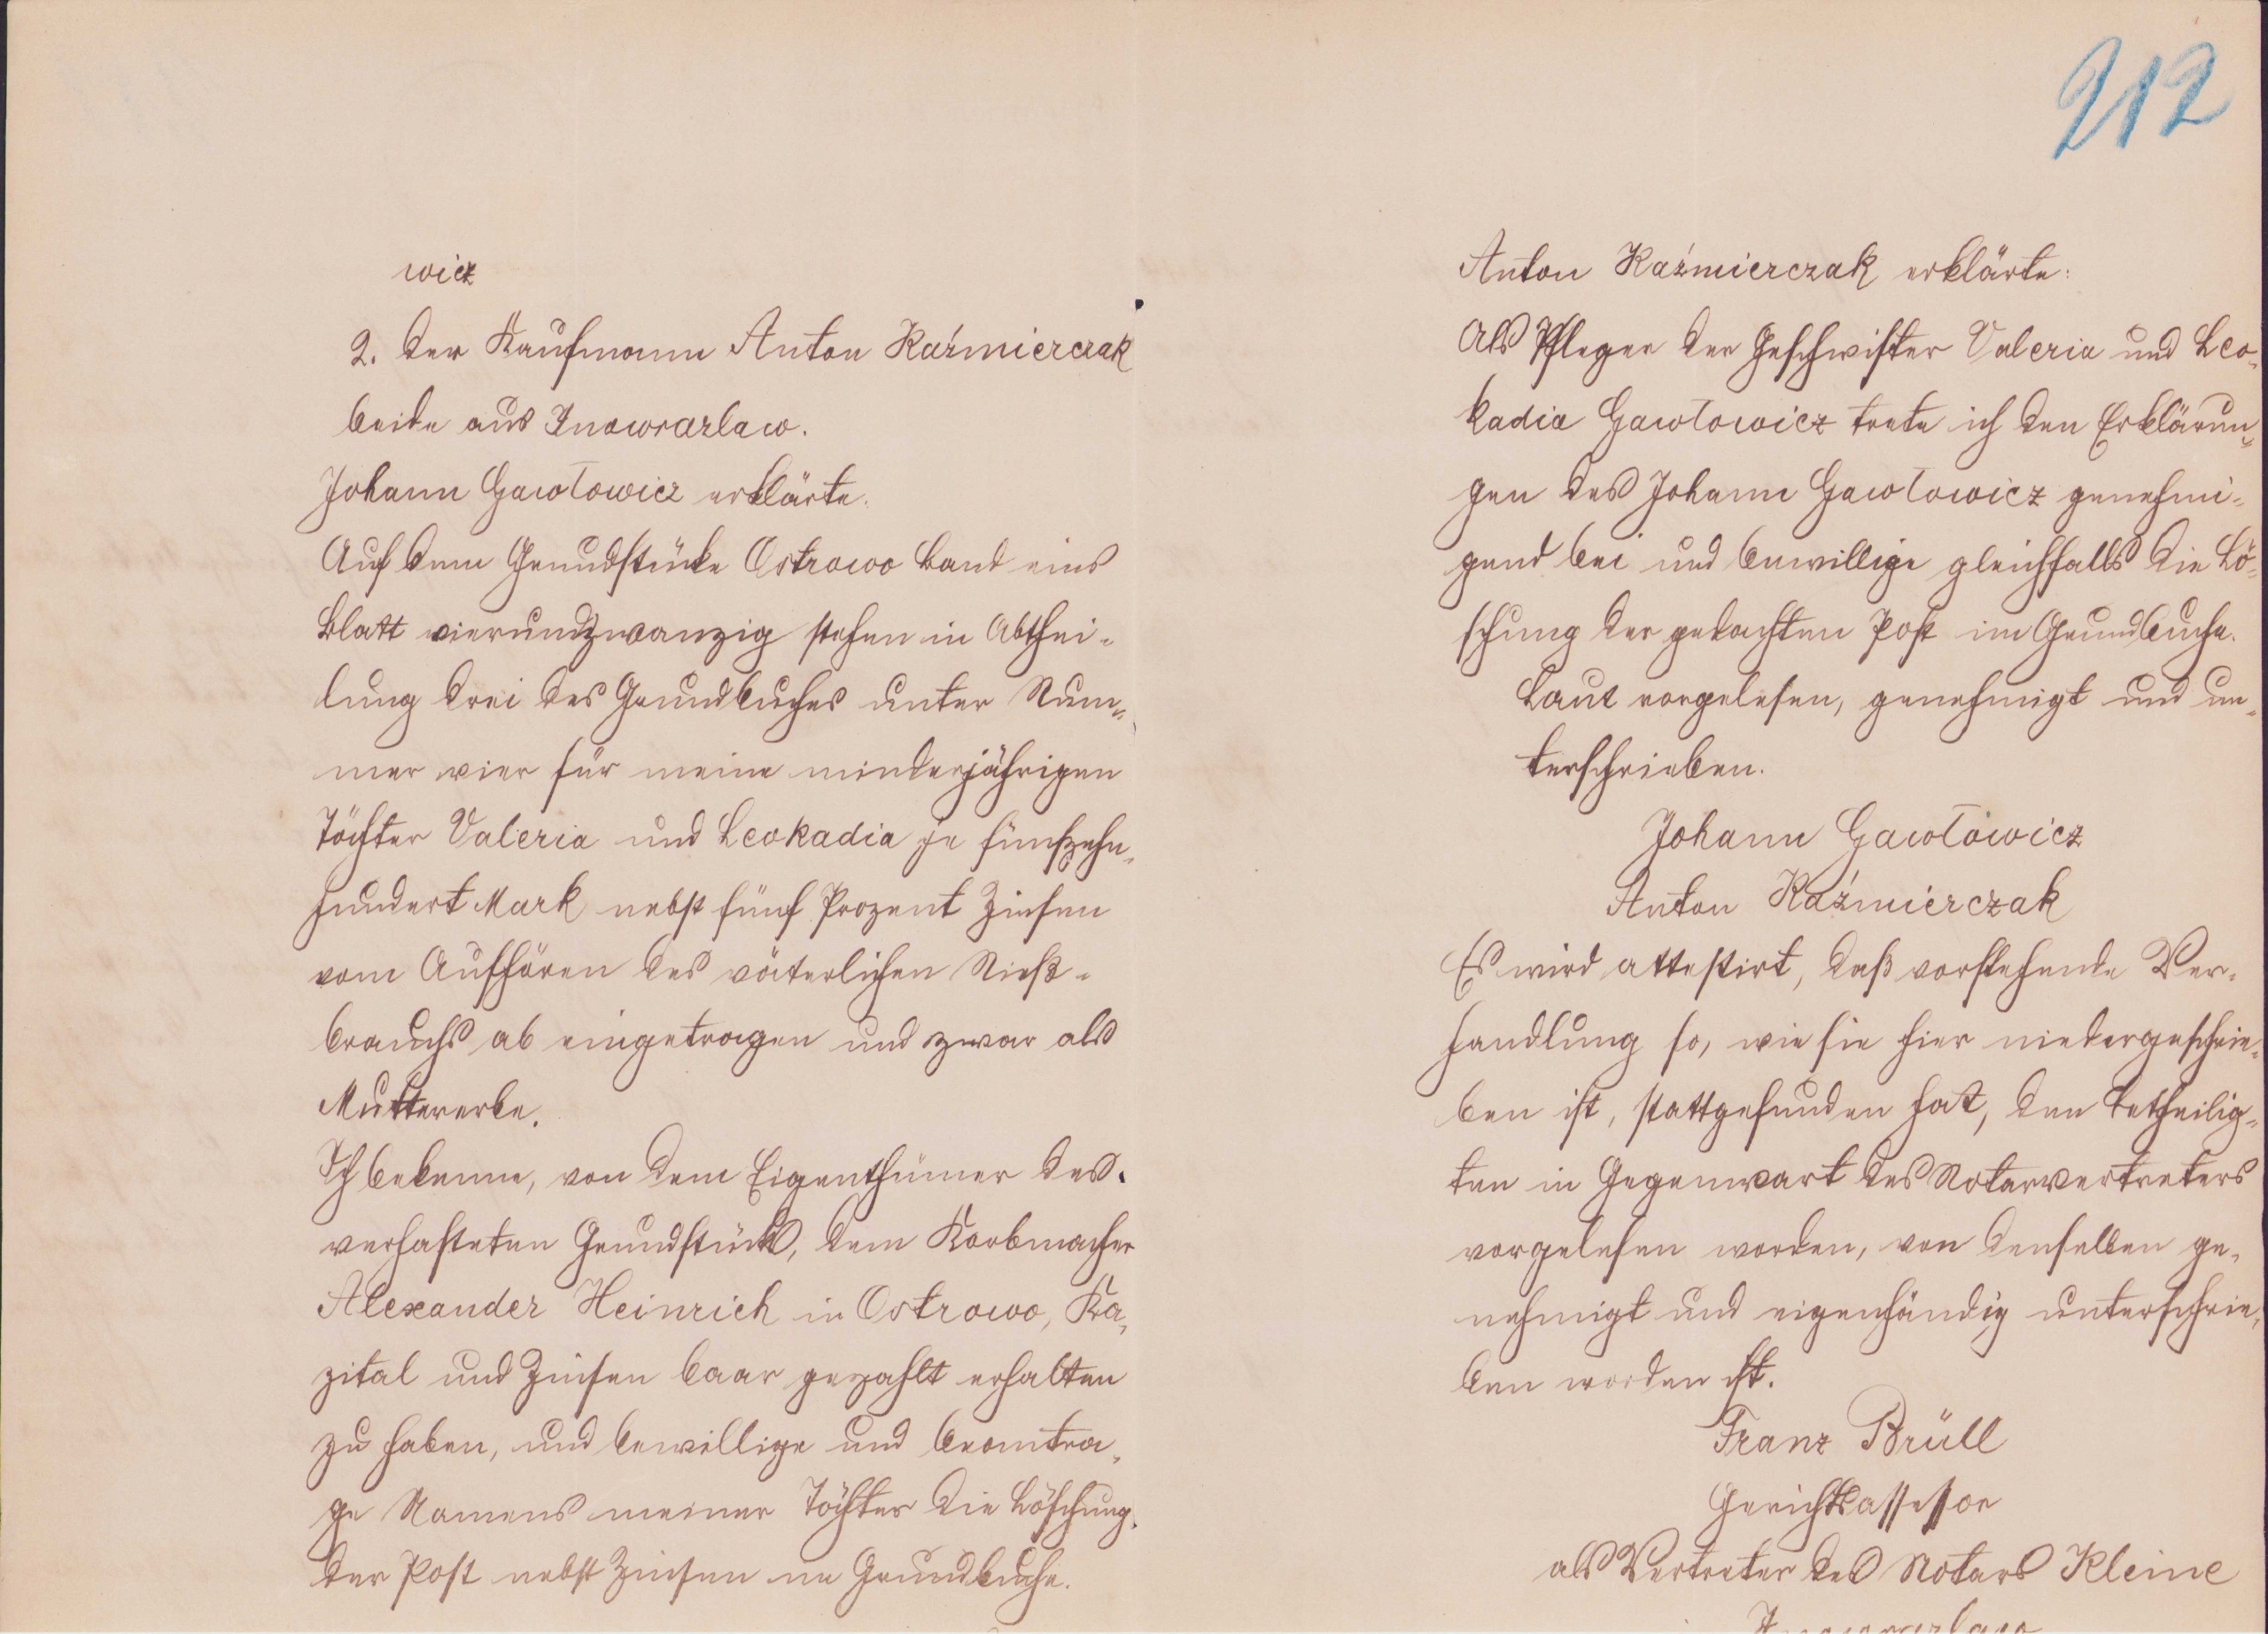 wicz
2. der Kaufmann Anton Kaźmierczak
beide aus Inowrazlaw.
Johann Gawłowicz erklärte.
Auf dem Grundstücke Ostrowo Band eins
Blatt vierundzwanzig stehen in Abthei-
lung drei des Grundbuches unter Num-
mer vier für meine minderjährigen
Töchter Valeria und Leokadia je fünfzehn-
hundert Mark nebst fünf Prozent Zinsen
vom Aufhören des väterlichen Nieß-
brauchs ab eingetragen und zwar als
Muttererbe.
Ich bekenne, von dem Eigenthümer des
verhafteten Grundstücks, dem Korbmacher
Alexander Heinrich in Ostrowo, Ka-
pital und Zinsen baar gezahlt erhalten
zu haben, und bewillige und beantra-
ge Namens meiner Töchter die Löschung
der Post nebst Zinsen im Grundbuche.
212
Anton Kaźmierczak erklärte:
Als Pfleger der Geschwister Valeria und Leo-
kadia Gawłowicz trete ich den Erklärun-
gen des Johann Gawłowicz genehmi-
gend bei und bewillige gleichfalls die Lö-
schung der gedachten Post im Grundbuche.
Laut vorgelesen, genehmigt und un-
terschrieben.
Johann Gawłowicz
Anton Kaźmierczak
Es wird attestirt, daß vorstehende Ver-
handlung so, wie sie hier niedergeschrie-
ben ist, stattgefunden hat, den Betheilig-
ten in Gegenwart des Notarvertreters
vorgelesen worden, von denselben ge-
nehmigt und eigenhändig unterschrie-
ben worden ist.
Franz Brüll
Gerichtsassessor
als Vertreter des Notars Kleine